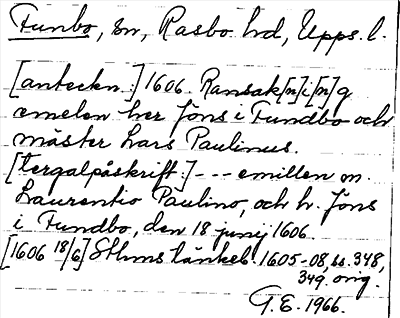 Funbo, sn, Rasbo hd, Upps. l.
[anteckn.:] 1606. Ransak[n]i[n]g
emelen her Jöns i Fundbo och
mäster Lars Paulinus.
[tergalpåskrift:] --- emillen m.
Laurentio Paulino, och h. Jöns
i Fundbo, den 18 junij 1606.
[1606 18/6] Sthms tänkeb. 1605-08, ss. 348,
349, orig.
G.E. 1966.